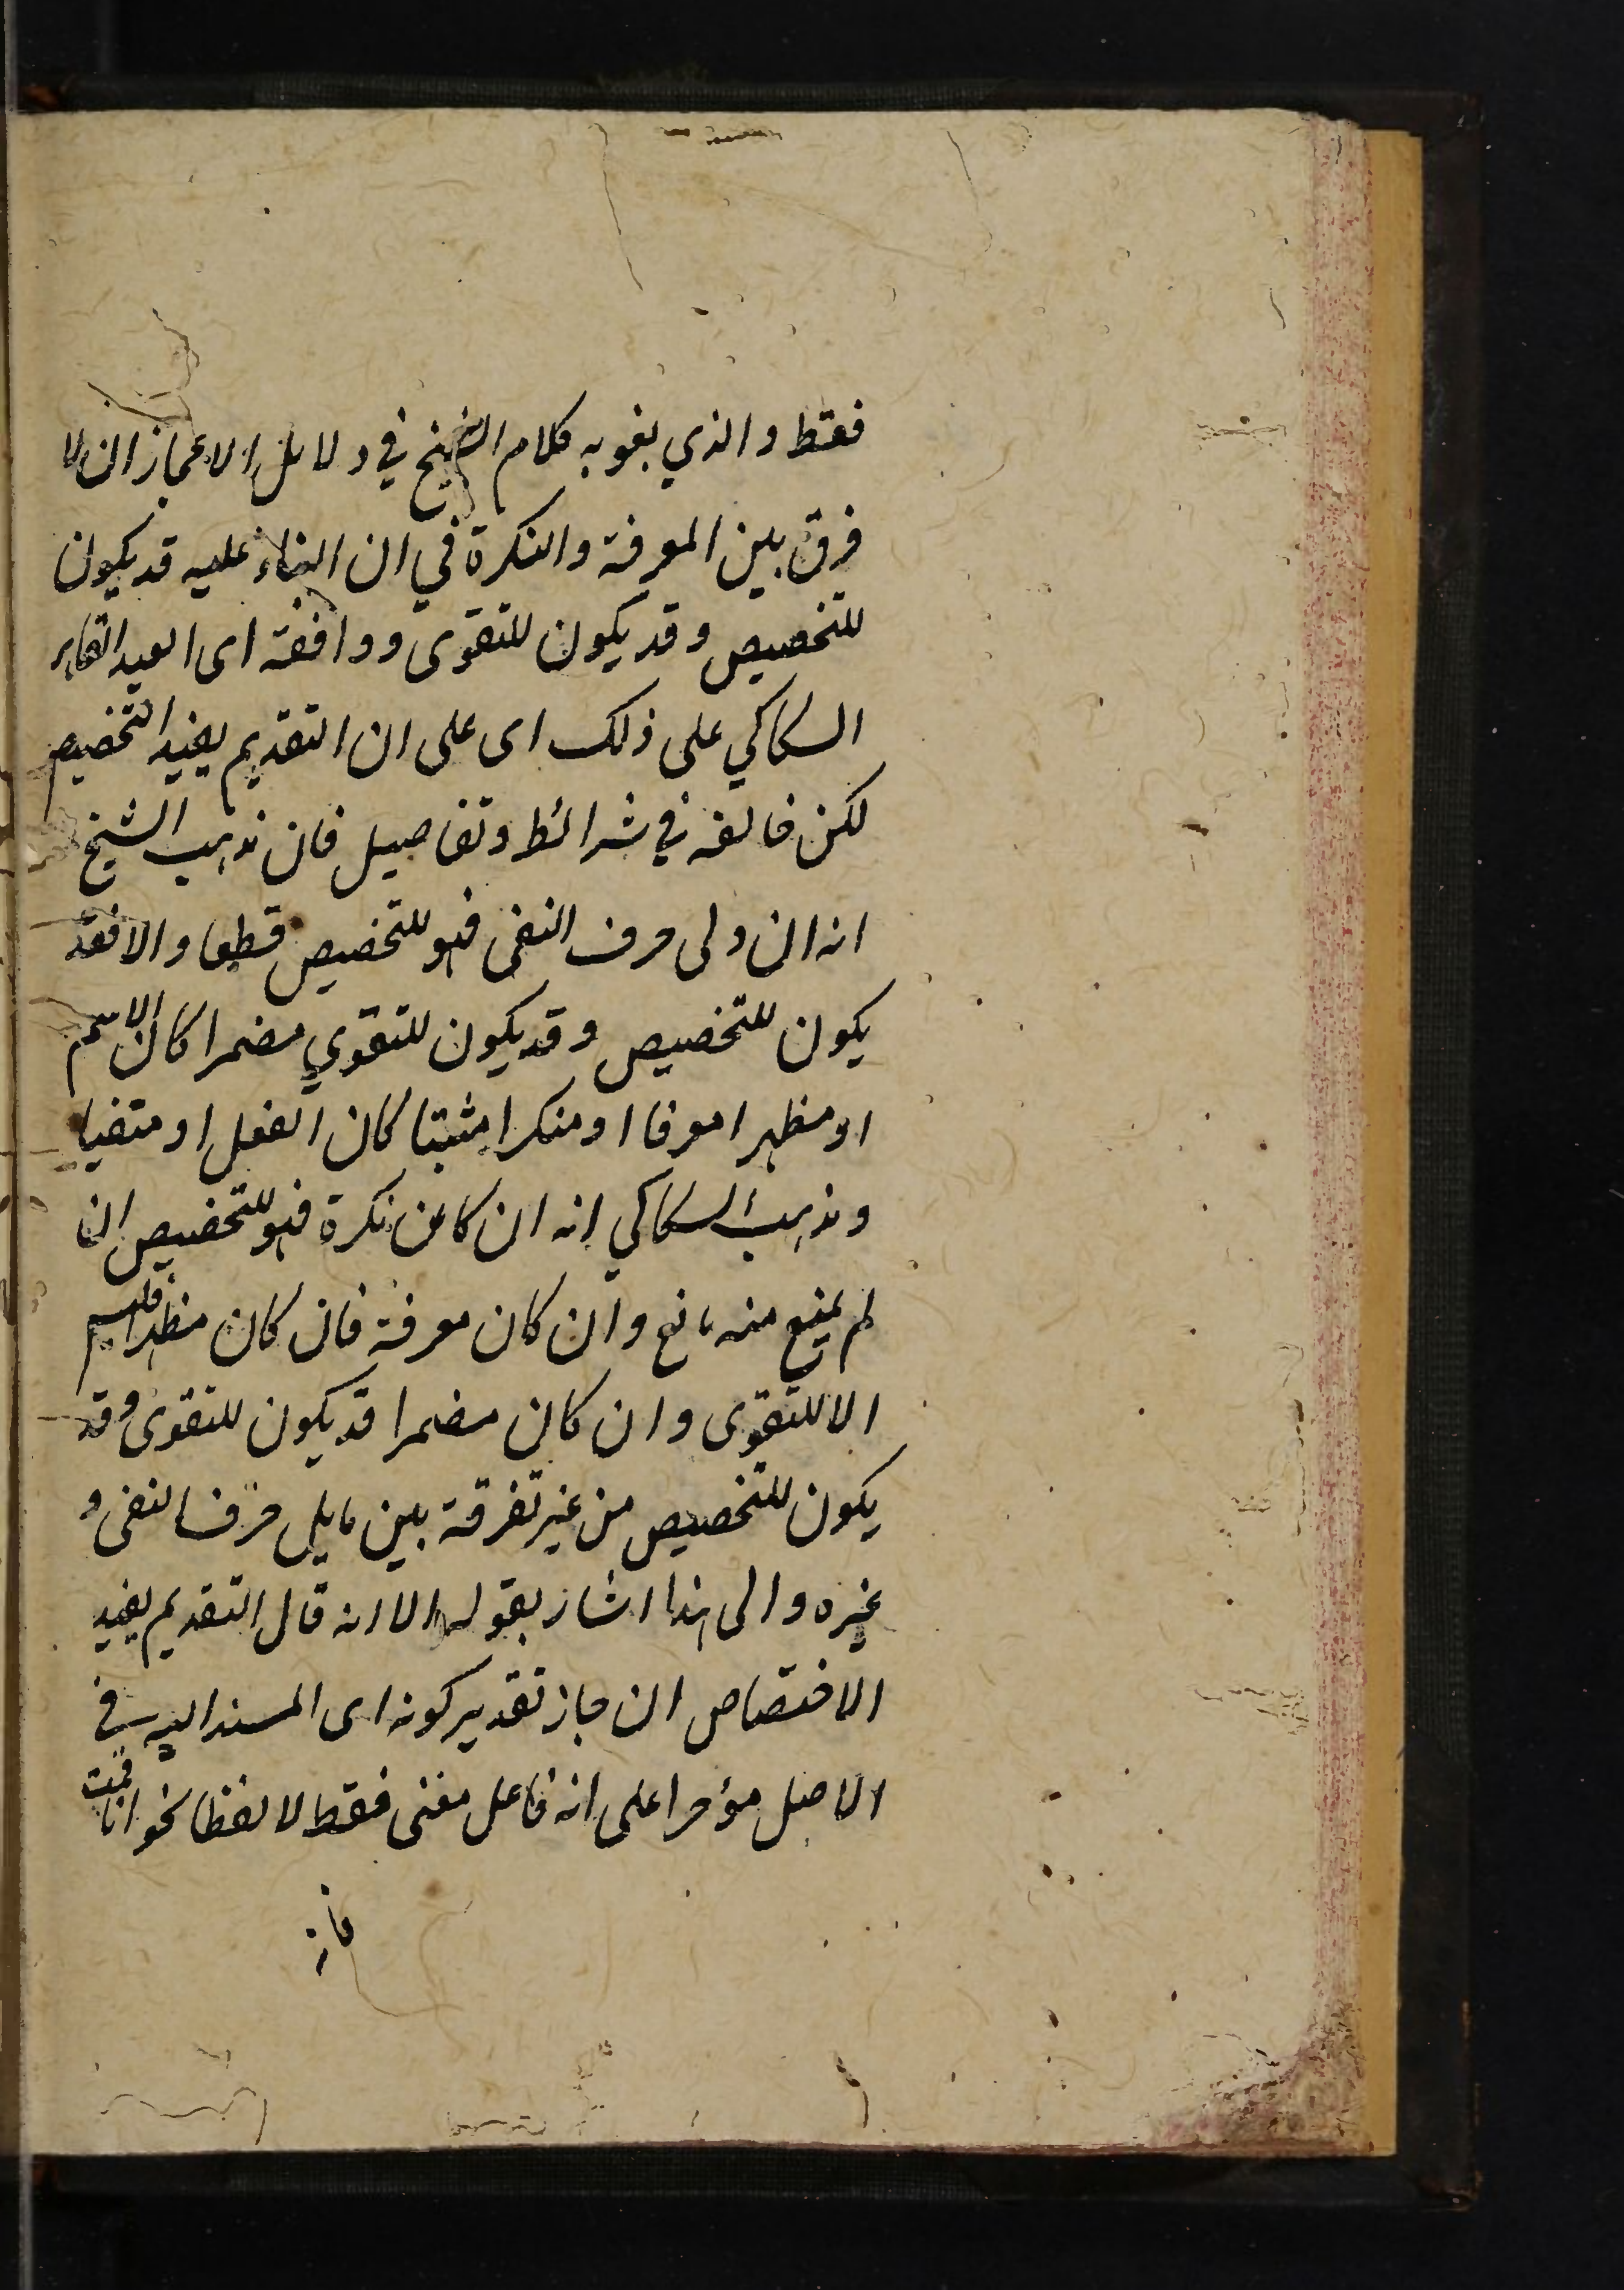 فقط والذي يفوبه كلام الشيخ في دلايل الاعجاز ان لا
فرق بين المعرفة والنكرة في ان البناء عليه قد يكون
للتخصيص وقد يكون للتقوى ووافقه اى العبد القاهر
السكاكي على ذلك اى على ان التقديم يفيد التخصيص
لكن خالفه في شرائط وتفاصيل فان مذهب الشيخ
انه ان ولى حرف النفى فهو للتخصيص قطعا والا فقد
يكون للتخصيص وقد يكون للتقوي مضمرا كان الاسم
او مظهرا معرفا او منكرا مثبتا كان الفعل او منفيا
ومذهب السكاكي انه ان كان نكرة فهو للتخصيص ان
لم يمنع منه مانع وان كان معرفة فان كان مظهرا فليس
الا للتقوى وان كان مضمرا قد يكون للتقوى وقد
يكون للتخصيص من غير تفرقة بين ما يلى حرف النفى و
غيره والى هذا اشار بقوله الا انه قال التقديم يفيد
الاختصاص ان جاز تقدير كونه اى المسند اليه في
الاصل مؤخرا على انه فاعل معنى فقط لا لفظا نحو انا قمت
فانه